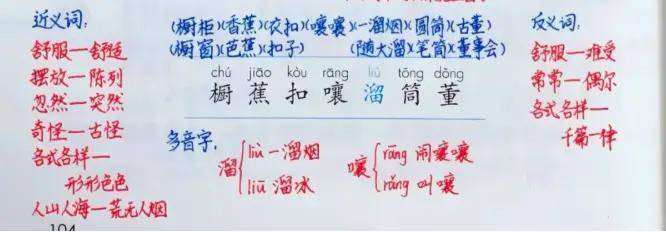 近义词:
舒服—舒适
摆放—陈列
忽然—突然
奇怪—古怪
各式各样—
形形色色
人山人海—荒无人烟
(橱柜)(香蕉)(衣扣)(嚷嚷)(一溜烟)(圆筒)(古董)
(橱窗)(芭蕉)(扣子) (随大溜)(笔筒)(董事会)
chú jiāo kòu rāng liù tǒng dǒng
橱 蕉 扣 嚷 溜 筒 董
多音字:
溜 { liù 一溜烟
liū 溜冰
嚷 { rāng 闹嚷嚷
rǎng 叫嚷
反义词:
舒服—难受
常常—偶尔
各式各样—
千篇一律
104